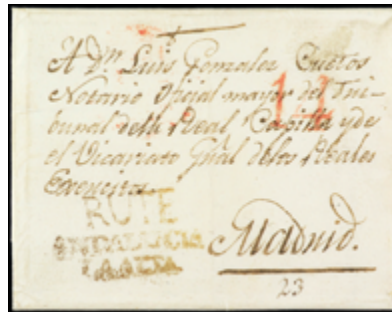 A Dn Luis Gonzalez Cuetos
Notario Oficial mayor del Tri-
bunal dela Real Capilla y de
el Vicariato Gñal delos Reales
Exercitos
14
RUTE
ANDALUCIA
LA ALTA
Madrid.
23